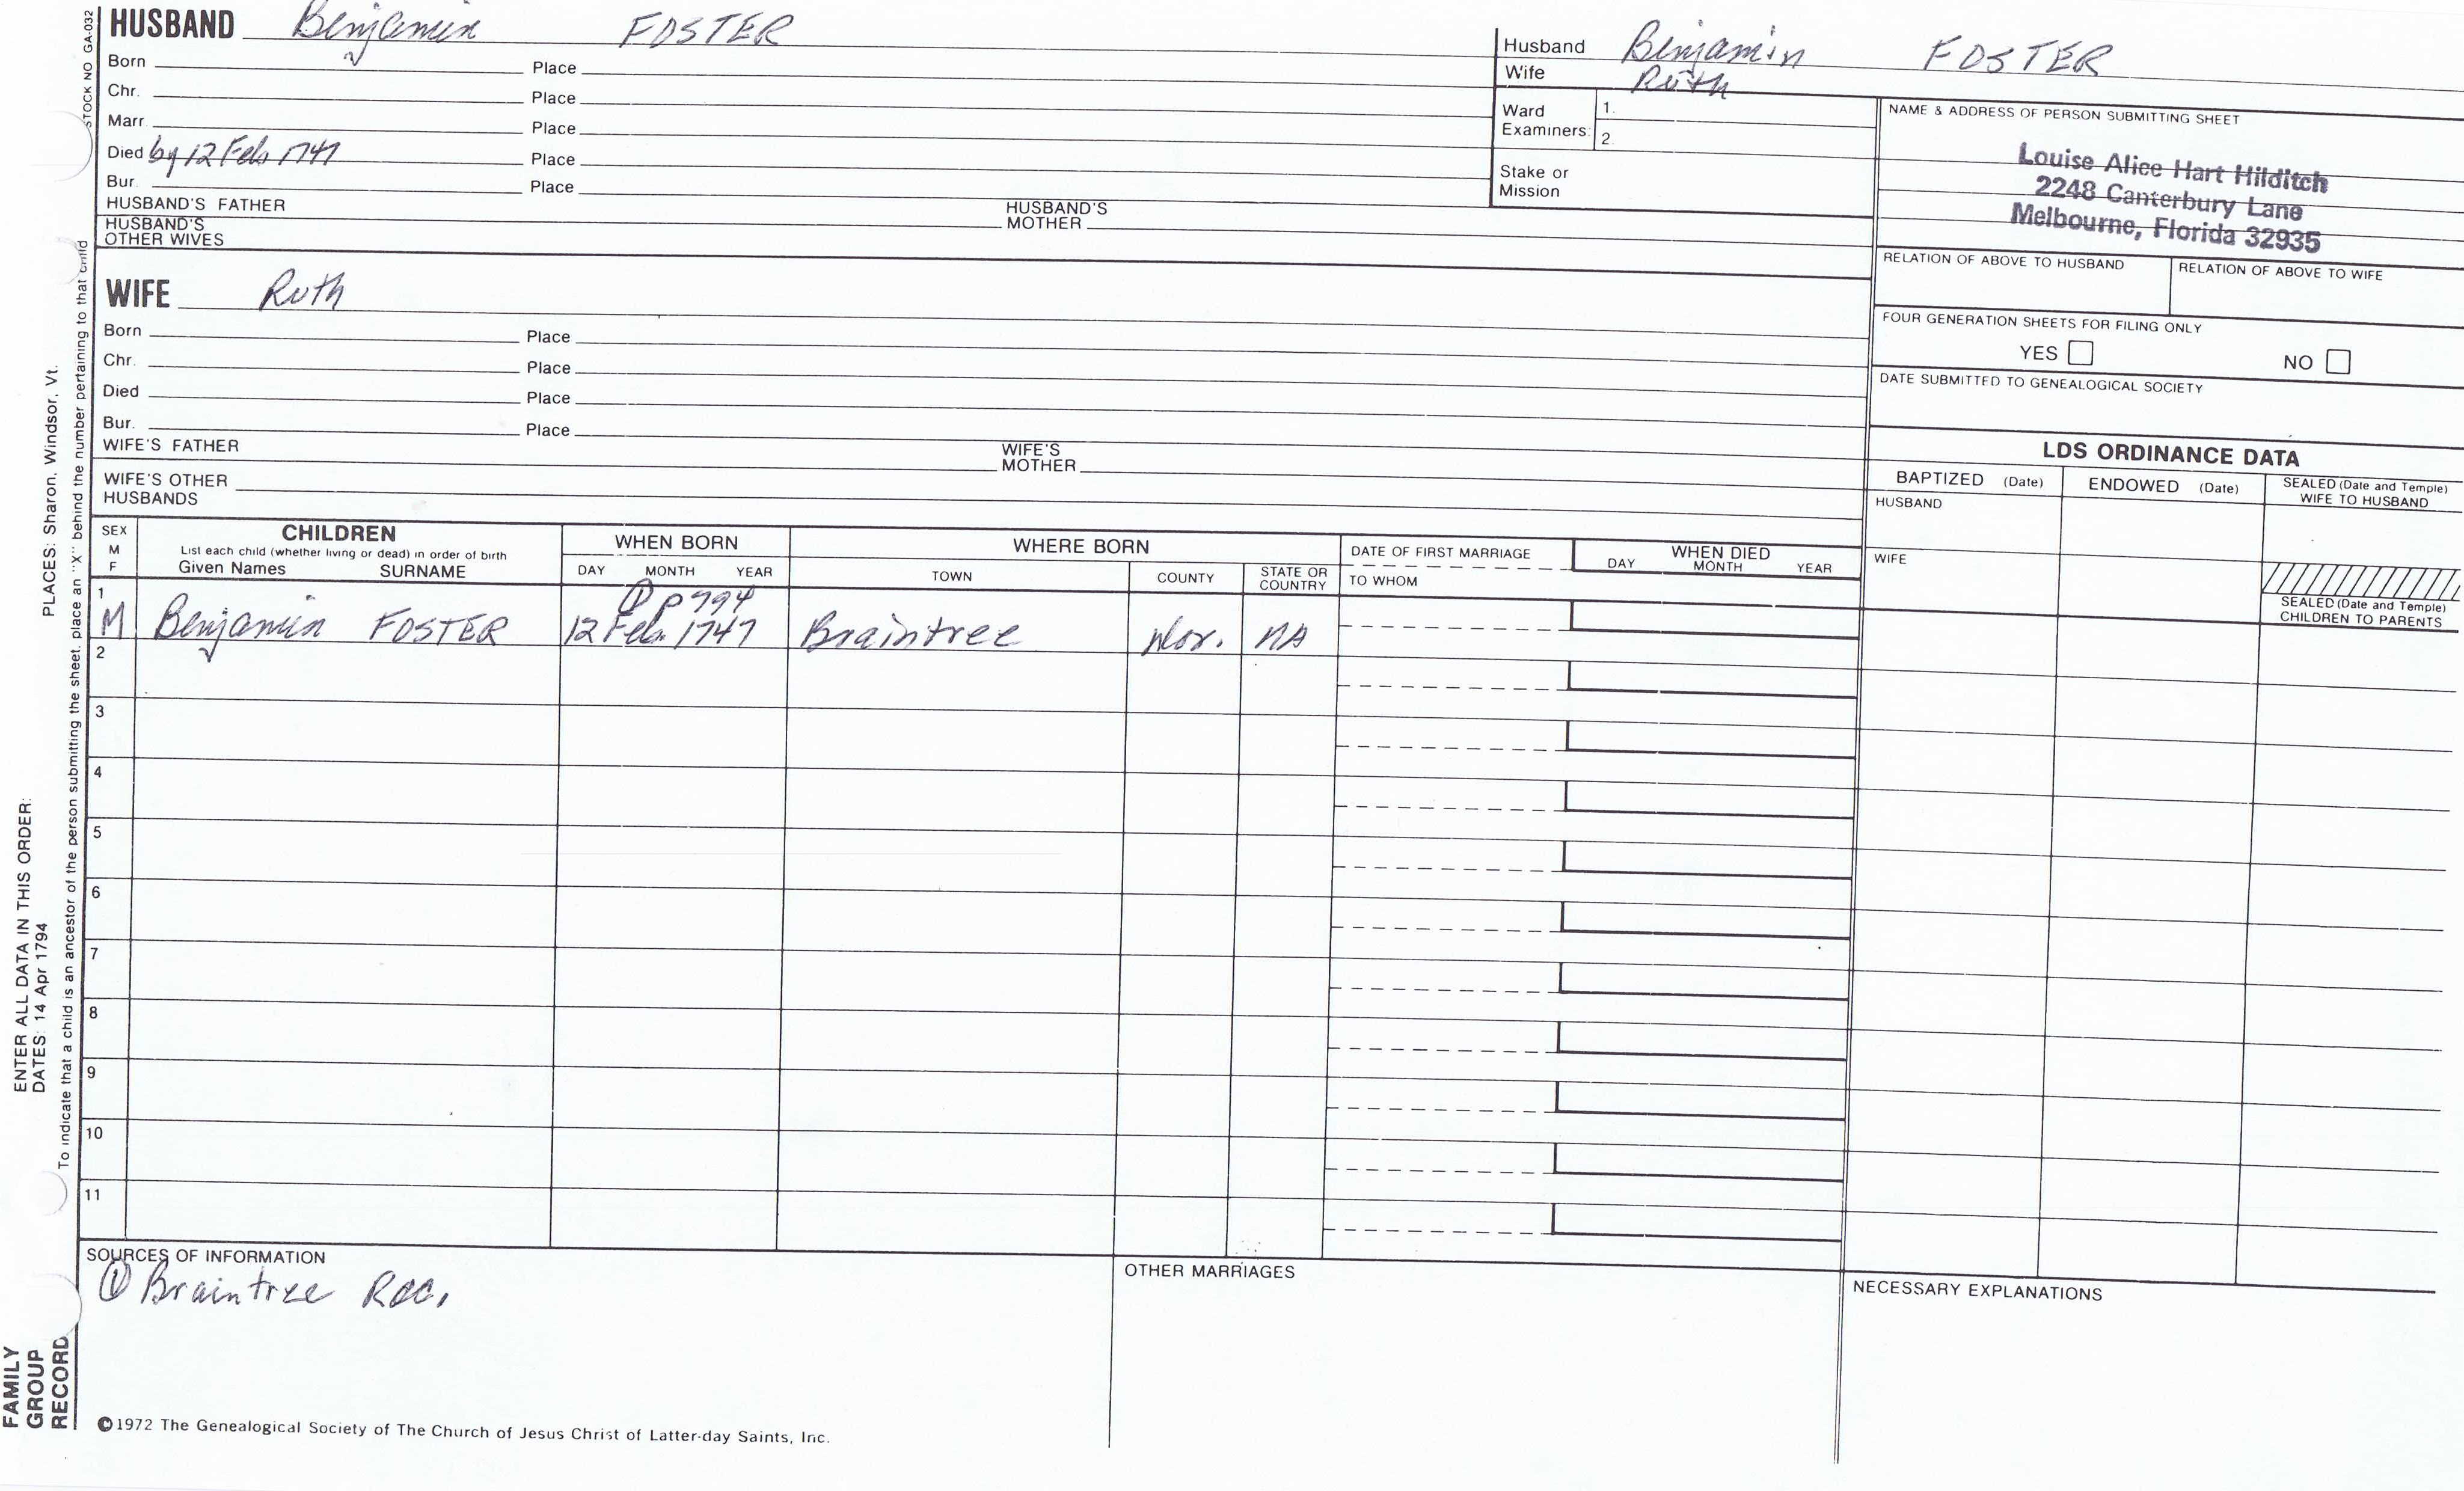 STOCK NO GA-032
HUSBAND Benjamin FOSTER
Born Place
Chr. Place
Marr. Place
Died by 12 Feb 1747 Place
Bur. Place
HUSBAND'S FATHER HUSBAND'S MOTHER
HUSBAND'S OTHER WIVES
Husband Benjamin FOSTER
Wife Ruth
Ward Examiners: 1.
2.
Stake or Mission
NAME & ADDRESS OF PERSON SUBMITTING SHEET
Louise Alice Hart Hilditch
2248 Canterbury Lane
Melbourne, Florida 32935
RELATION OF ABOVE TO HUSBAND RELATION OF ABOVE TO WIFE
FOUR GENERATION SHEETS FOR FILING ONLY
YES NO
DATE SUBMITTED TO GENEALOGICAL SOCIETY
WIFE Ruth
Born Place
Chr. Place
Died Place
Bur. Place
WIFE'S FATHER WIFE'S MOTHER
WIFE'S OTHER HUSBANDS
LDS ORDINANCE DATA
BAPTIZED (Date) ENDOWED (Date) SEALED (Date and Temple) WIFE TO HUSBAND
HUSBAND
WIFE
SEALED (Date and Temple) CHILDREN TO PARENTS
SEX M F
CHILDREN
List each child (whether living or dead) in order of birth
Given Names SURNAME
WHEN BORN
DAY MONTH YEAR
WHERE BORN
TOWN COUNTY STATE OR COUNTRY
DATE OF FIRST MARRIAGE
TO WHOM
WHEN DIED
DAY MONTH YEAR
① p 794
1 M Benjamin FOSTER 12 Feb. 1747 Braintree Nor. MA
2
3
4
5
6
7
8
9
10
11
SOURCES OF INFORMATION
① Braintree Rec.
OTHER MARRIAGES
NECESSARY EXPLANATIONS
©1972 The Genealogical Society of The Church of Jesus Christ of Latter-day Saints, Inc.
FAMILY GROUP RECORD
ENTER ALL DATA IN THIS ORDER:
DATES: 14 Apr 1794
PLACES: Sharon, Windsor, Vt.
To indicate that a child is an ancestor of the person submitting the sheet, place an "X" behind the number pertaining to that child